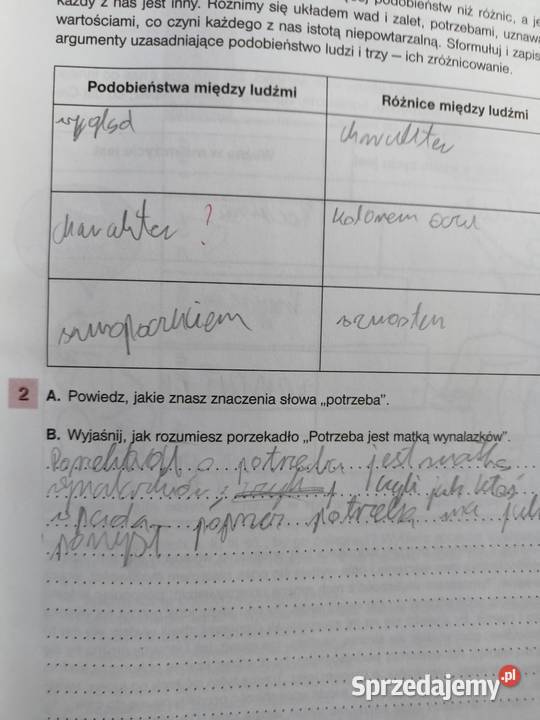 Każdy z nas jest inny. Różnimy się układem wad i zalet, potrzebami, uznaw
podobieństw niż różnic, a je
wartościami, co czyni każdego z nas istotą niepowtarzalną. Sformułuj i zapis
argumenty uzasadniające podobieństwo ludzi i trzy – ich zróżnicowanie.
Podobieństwa między ludźmi
Różnice między ludźmi
wygląd
charakter
charakter ?
kolorem oczu
2 A. Powiedz, jakie znasz znaczenia słowa „potrzeba”.
B. Wyjaśnij, jak rozumiesz porzekadło „Potrzeba jest matką wynalazków”.
o potrzeba jest matką
czyli jak ktoś
wpada poprzez potrzeba na
pomysł
Sprzedajemy.pl